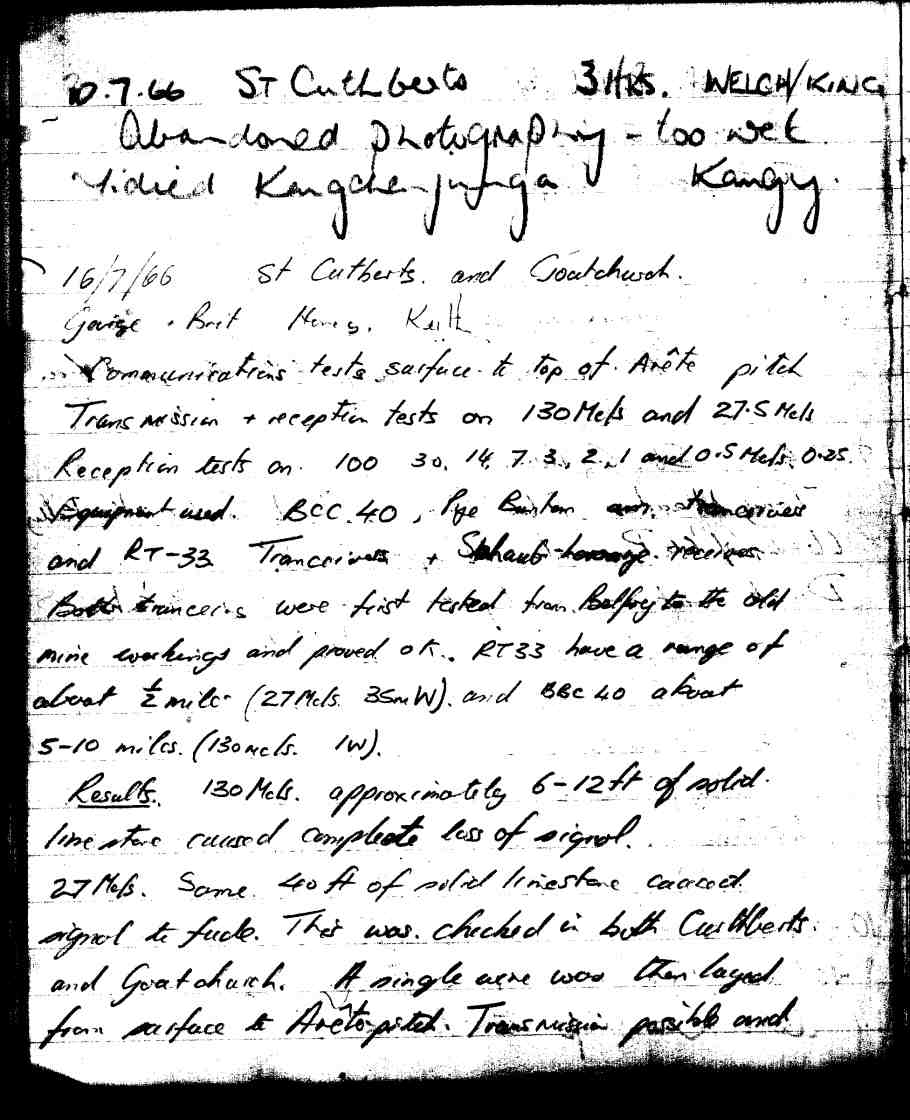 10.7.66 St Cuthberts 3 HRS. WELCH/KING
Abandoned photography - too wet.
tidied Kangchenjunga Kangy.
16/7/66 St Cutberts. and Goatchurch.
George + Bret Henry. Keith
Communications tests surface to top of Arête pitch
Transmission + reception tests on 130 Mc/s and 27.5 Mc/s
Reception tests on. 100 30, 14, 7. 3., 2, 1 and 0.5 Mc/s. 0.25.
Equipment used. BCC.40, Pye Bantam
and RT-33 Tranceivers + receiver
Both tranceivers were first tested from Belfry to the old
mine workings and proved ok. RT33 have a range of
about ½ mile (27 Mc/s. 35mW). and BBC 40 about
5-10 miles. (130 mc/s. 1W).
Results. 130 Mc/s. approximately 6-12 ft of solid
limestone caused compleate loss of signal.
27 Mc/s. Some 40 ft of solid limestone caused
signal to fade. This was checked in both Cuthberts.
and Goatchurch. A single wire was then layed
from surface to Arête pitch. Transmission possible and